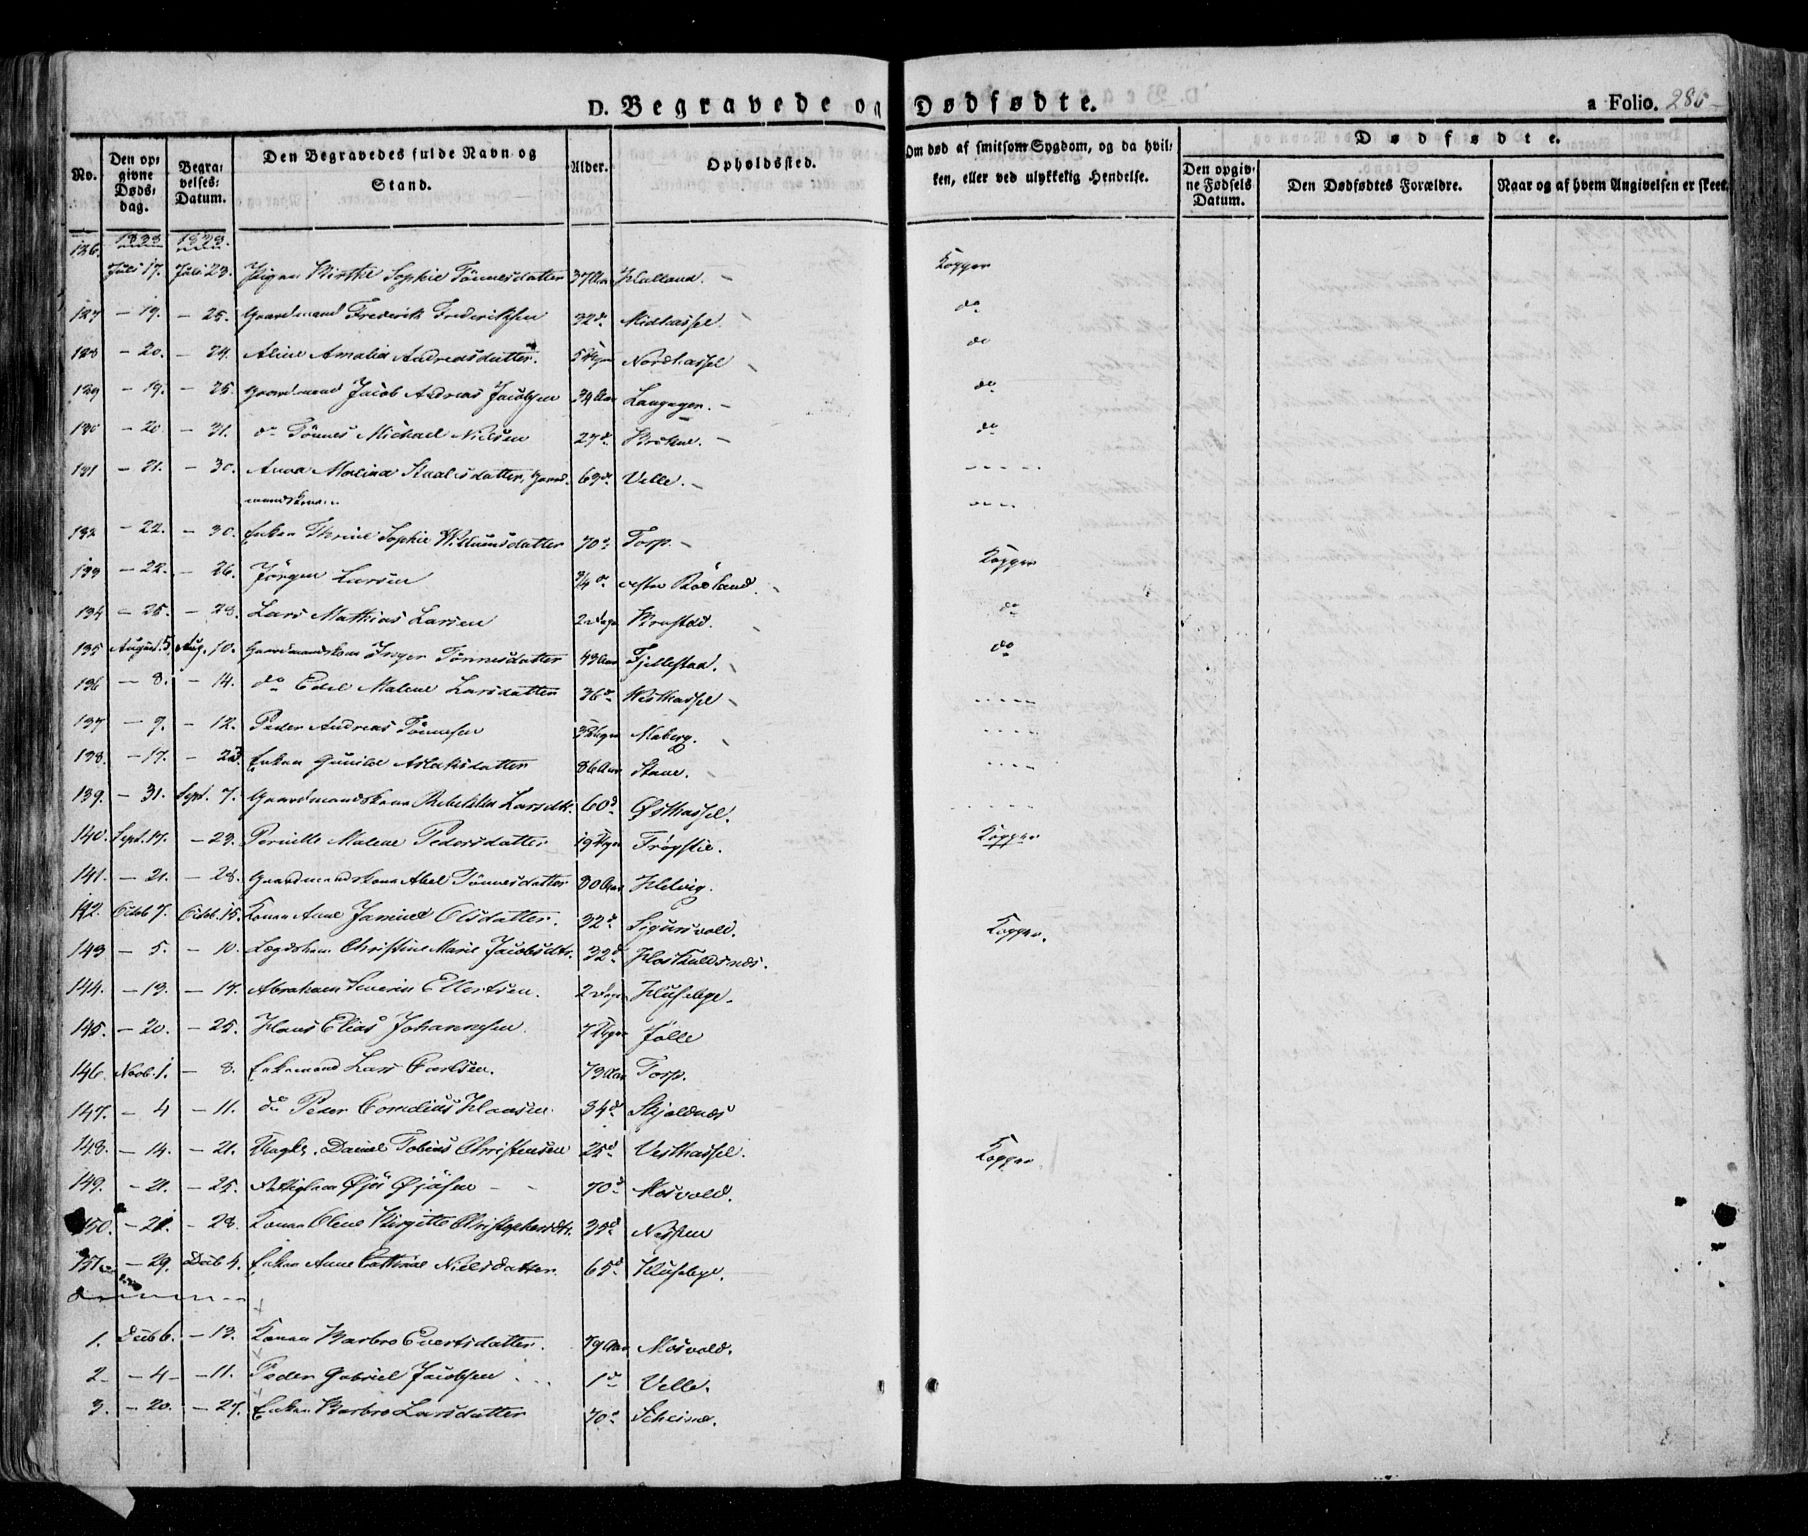 D. Begravede og Dødfødte.
a Folio. 285
No.
Den opgivne Dødsdag.
Begravelses-Datum.
Den Begravedes fulde Navn og Stand.
Alder.
Opholdssted.
Om død af smitsom Sygdom, og da hvilken, eller ved ulykkelig Hendelse.
Dødfødte.
Den opgivne Fødsels Datum.
Den Dødfødtes Forældre.
Naar og af hvem Angivelsen er skeet.
126. Juli 17. Juli 23. Pigen Birthe Sophie Tönnesdatter 37 Aar Kopper
127 — 19. — 25. Gaardmand Frederik Frederiksen 32 do Midhassel. do
128 — 20. — 24. Aline Amalia Andreasdatter. Nordhassel do
129 — 19. — 25. Gaardmand Jacob Andreas Jacobsen 34 Aar Langager. do
130 — 20. — 31. do Tönnes Michael Nielsen 27 do do
131 — 21. — 30. Anna Malina Staalesdatter, Gaardmandskone 63 do Velle.
132 — 22. — 30. Enken Thrine Sophie Willumsdatter 70 do Torp.
133 — 22. — 26. Jörgen Larsen 3/4 do Kopper
134 — 25. — 28. Lars Mathias Larsen 2 Dage Brastad. do
135 August 5. Aug. 10. Gaardmandskone Inger Tönnesdatter 43 Aar Fjellestad. do
136 — 8. — 14. do Edel Malene Larsdatter 36 do Vesthassel
137 — 9. — 12. Peder Andreas Tönnesen Maberg.
138. — 17. — 23. Enken Gunild Aslaksdatter 86 Aar Stave.
139. — 31. Sept. 7. Gaardmandskone Larsdtr. 60 do Østhassel.
140. Sept. 17. — 23. Pernille Malene Pedersdatter Frøystie. Kopper
141. — 21. — 28. Gaardmandskone Abel Tönnesdatter 30 Aar Helvig.
142. Octob 7. Octob. 15. Konen Ane Jamine Olsdatter. 32 do Sigursvold. Kopper.
143 — 5. — 10. Lægdskone Christine Marie Jacobsdtr. 32 do Hoskuldsnæs.
144. — 13. — 17. Abraham Severin Ellertsen. 2 Dage Husebye.
145. — 20. — 25. Hans Elias Johannesen. Jölle
146. Novb. 1. — 8. Enkemand Lars Carlsen. 73 Aar Torp.
147. — 4 — 11. do Peder Cornelius Hansen 34 do Skjoldnæs
148. — 14. — 21. Ungk. Daniel Tobias Christensen 25 do Vesthassel. Kopper
149. — 21. — 25. Øjös Øjösen 70 do Mosvold.
150. — 21. — 28. Konen Oline Birgitte Christophersdtr. 35 do Nesten
151 — 29. Decb 4. Enken Anne Cathrine Nielsdatter. 65 do Husebye.
1. Decb 6. — 13. Konen Barbro Evertsdatter. 79 Aar Mosvold.
2 — 4 — 11. Peder Gabriel Jacobsen 1 do Velle.
3. — 20. — 27. Enken Barbro Larsdatter 70 do